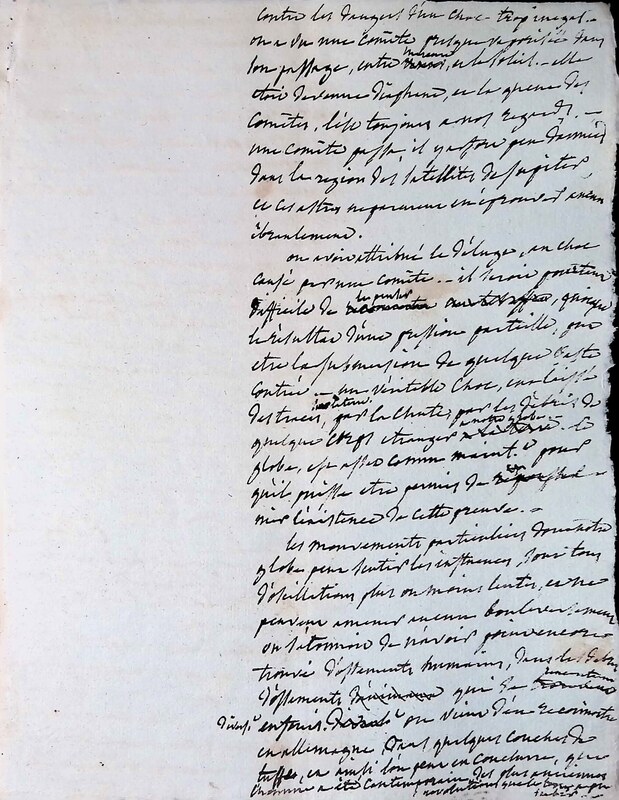 contre les dangers d'un choc trop inegal. –
on a vu une Comète presque vaporisée dans
son passage, entre mercure, et le soleil. – elle
etoit devenue diaphane, et la queue des
Comètes, l'est toujours a nos regards. –
une Comète passa, il y a fort peu d'années
dans la region des satellites de Jupiter,
et ces astres ne parurent en éprouver aucun
ébranlement.
on avoit attribué le déluge, au choc
causé par une comète. – il seroit pourtant
difficile de le penser, quoique
le résultat d'une pression partielle, put
etre la submersion de quelque vaste
Contrée. – un véritable choc, eut laissé
des traces, par la chute, par les débris de
quelque corps etranger a notre globe. le
globe, est assez connu maint.t pour
qu'il puisse etre permis de
nier l'existence de cette preuve. –
les mouvements particuliers dont notre
globe peut sentir les influences, sont tous
d'oscillations plus ou moins lentes, et ne
peuvent amener aucun bouleversement
on s'étonnoit de n'avoir point encore
trouvé d'ossements humains, dans les débris
d'ossements qui se
divers enfouis. on vient d'en reconnoitre
en allemagne, dans quelques couches de
tuffes, et ainsi l'on peut en conclure, que
l'homme a été contemporain des plus anciennes
révolutions que le